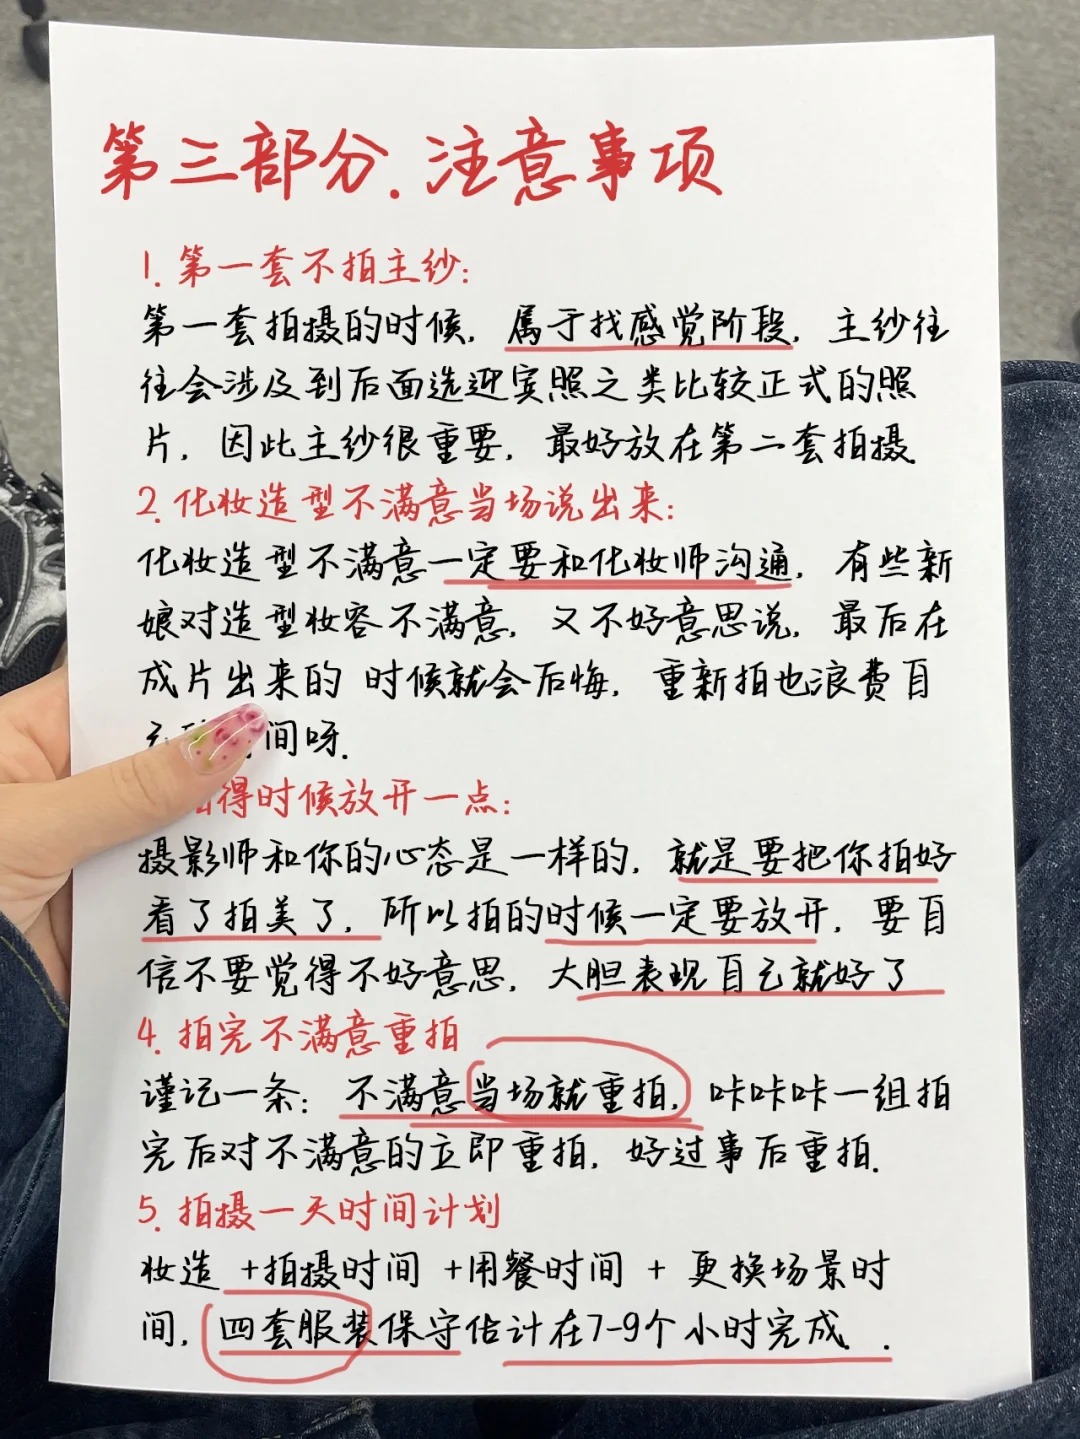 第三部分.注意事项
1.第一套不拍主纱:
第一套拍摄的时候,属于找感觉阶段,主纱往
往会涉及到后面选迎宾照之类比较正式的照
片,因此主纱很重要,最好放在第二套拍摄.
2.化妆造型不满意当场说出来:
化妆造型不满意一定要和化妆师沟通,有些新
娘对造型妆容不满意,又不好意思说,最后在
成片出来的 时候就会后悔,重新拍也浪费自
间呀.
得时候放开一点:
摄影师和你的心态是一样的,就是要把你拍好
看了拍美了,所以拍的时候一定要放开,要自
信不要觉得不好意思,大胆表现自己就好了
4.拍完不满意重拍
谨记一条:不满意当场就重拍,咔咔咔一组拍
完后对不满意的立即重拍,好过事后重拍.
5.拍摄一天时间计划
妆造 +拍摄时间 +用餐时间 + 更换场景时
间,四套服装保守估计在7-9个小时完成..